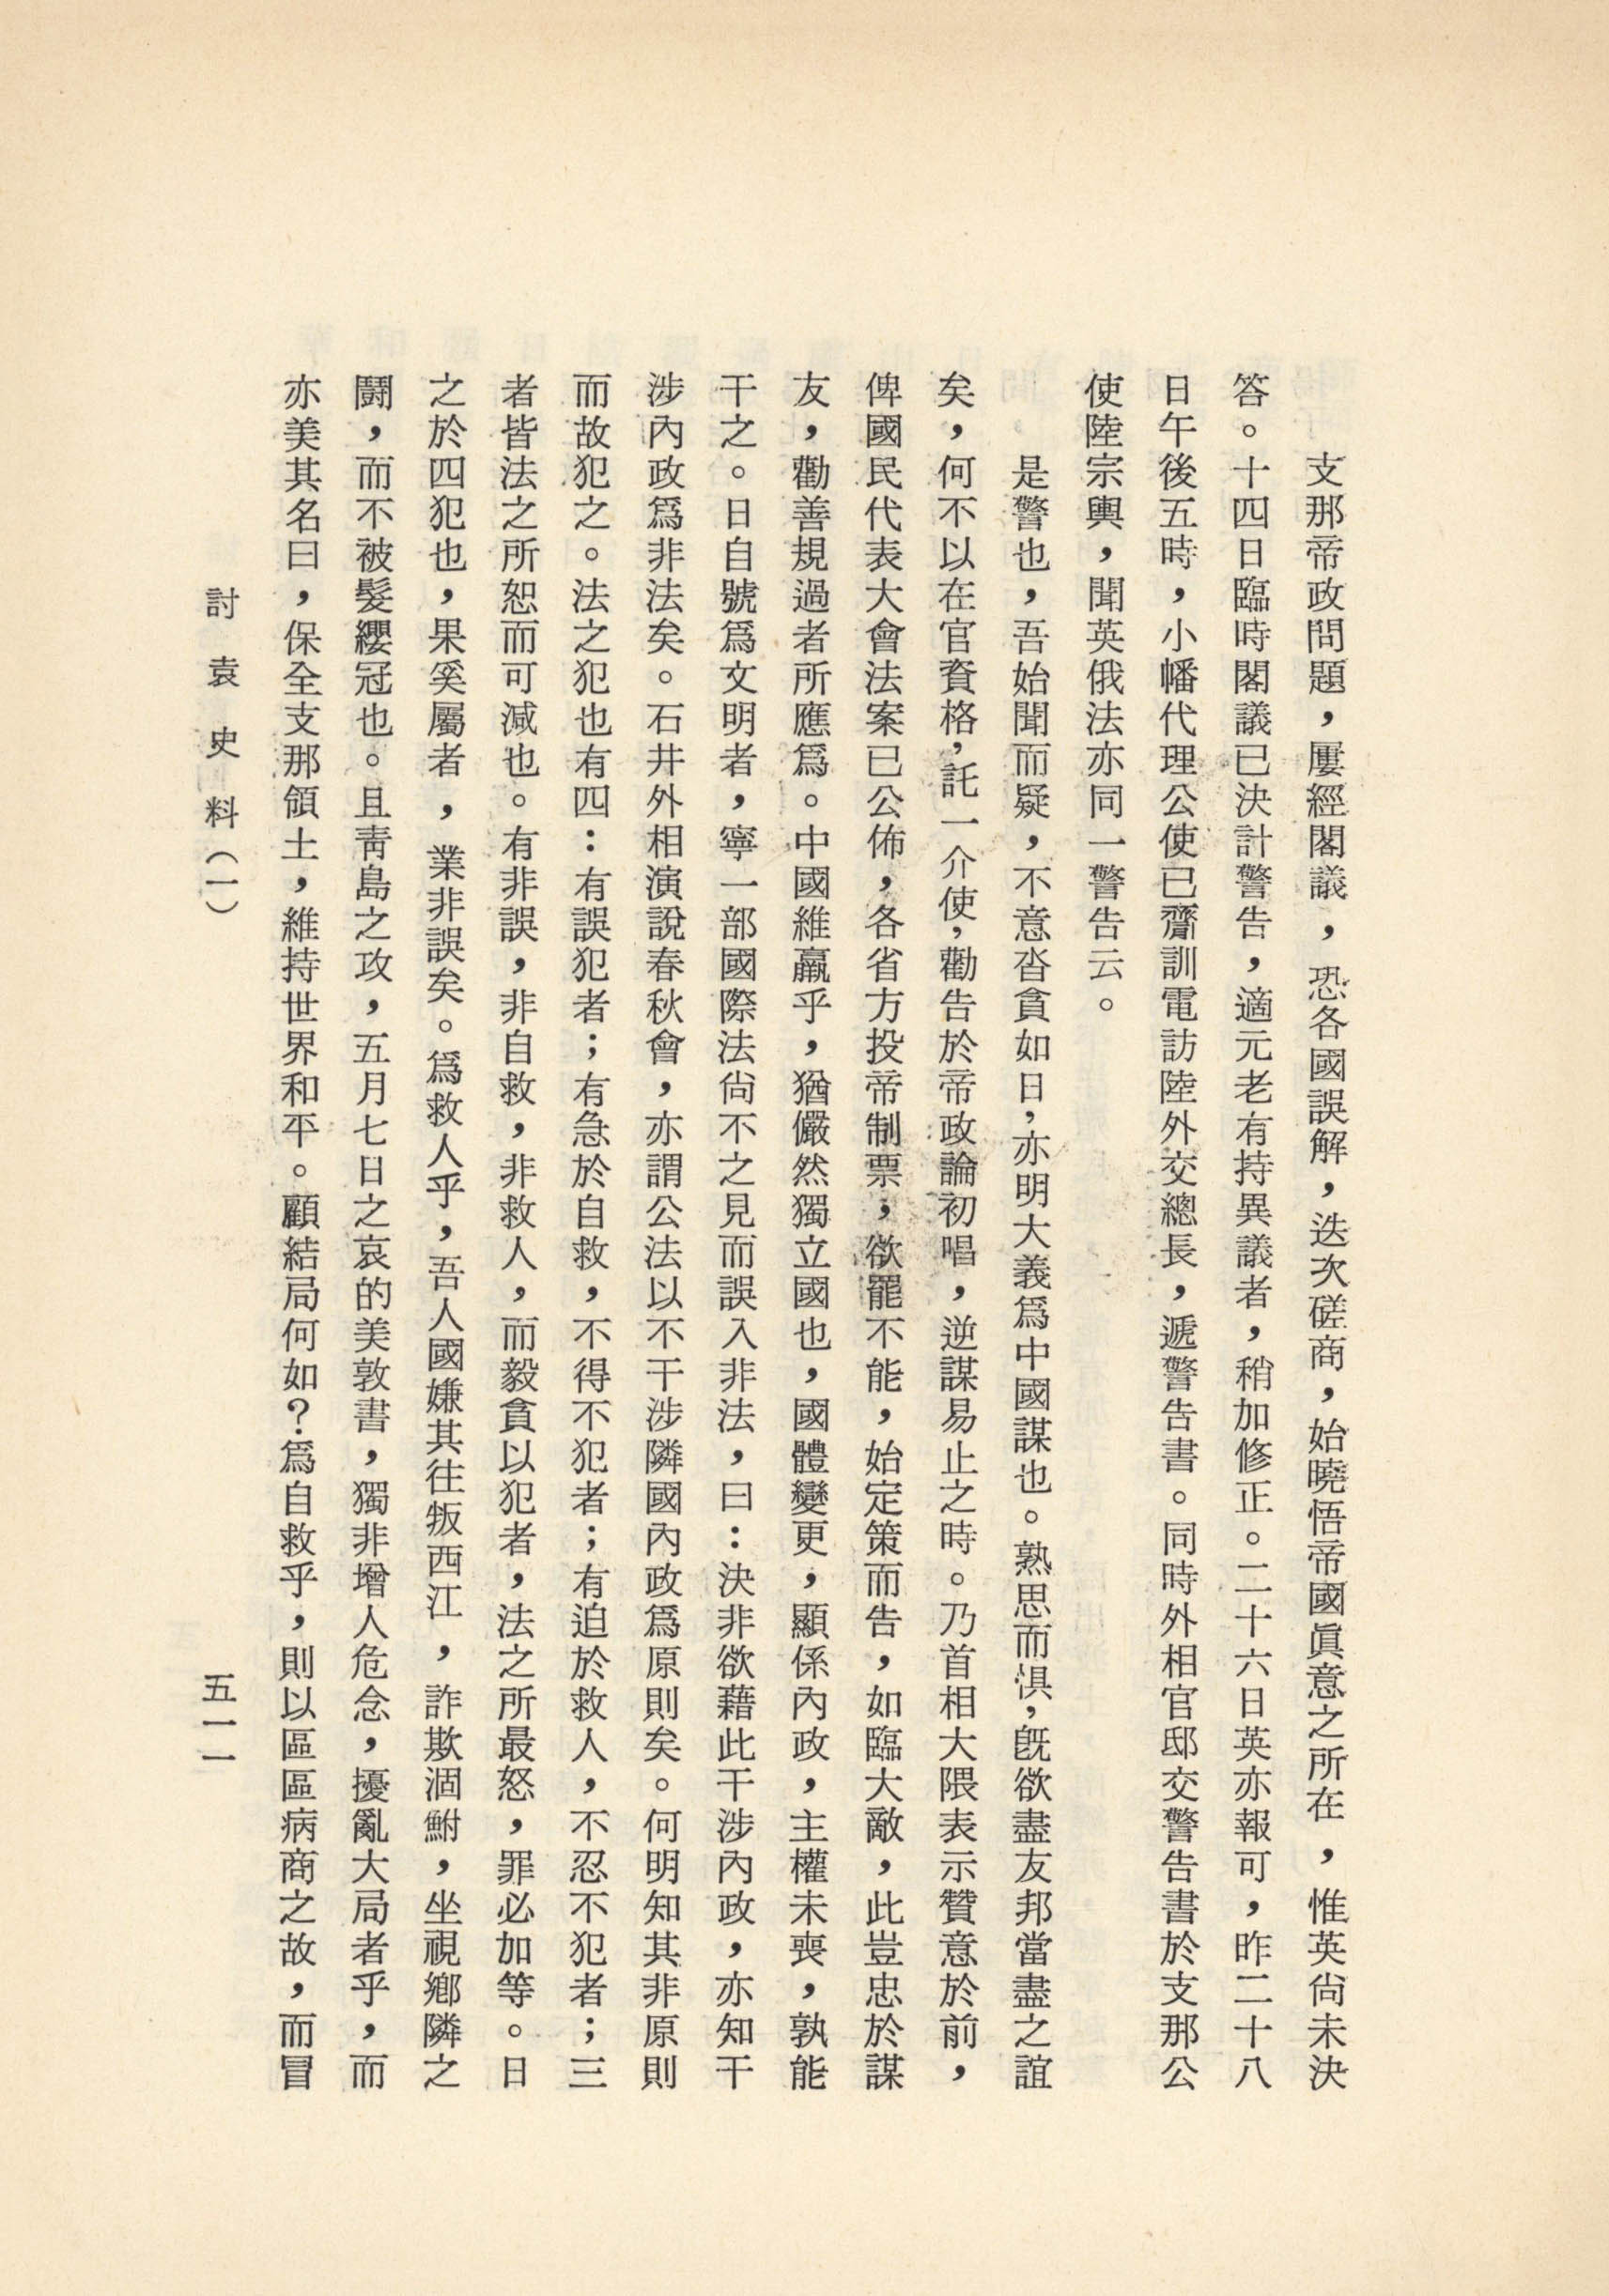 支那帝政問題，屢經閣議，恐各國誤解，迭次磋商，始曉悟帝國眞意之所在，惟英尙未決
答。十四日臨時閣議已決計警告，適元老有持異議者，稍加修正。二十六日英亦報可，昨二十八
日午後五時，小幡代理公使已齎訓電訪陸外交總長，遞警告書。同時外相官邸交警告書於支那公
使陸宗輿，聞英俄法亦同一警告云。
是警也，吾始聞而疑，不意沓貪如日，亦明大義爲中國謀也。熟思而惧，旣欲盡友邦當盡之誼
矣，何不以在官資格，託一介使，勸告於帝政論初唱，逆謀易止之時。乃首相大隈表示贊意於前，
俾國民代表大會法案已公佈，各省方投帝制票，欲罷不能，始定策而告，如臨大敵，此豈忠於謀
友，勸善規過者所應爲。中國維羸乎，猶儼然獨立國也，國體變更，顯係內政，主權未喪，孰能
干之。日自號爲文明者，寧一部國際法尙不之見而誤入非法，曰：決非欲藉此干涉內政，亦知干
涉內政爲非法矣。石井外相演說春秋會，亦謂公法以不干涉隣國內政爲原則矣。何明知其非原則
而故犯之。法之犯也有四：有誤犯者；有急於自救，不得不犯者；有迫於救人，不忍不犯者；三
者皆法之所恕而可減也。有非誤，非自救，非救人，而毅貪以犯者，法之所最怒，罪必加等。日
之於四犯也，果奚屬者，業非誤矣。爲救人乎，吾人國嫌其往叛西江，詐欺涸鮒，坐視鄕隣之
鬪，而不被髮纓冠也。且靑島之攻，五月七日之哀的美敦書，獨非增人危念，擾亂大局者乎，而
亦美其名曰，保全支那領土，維持世界和平。顧結局何如？爲自救乎，則以區區病商之故，而冒
討袁史料（一）
五一一